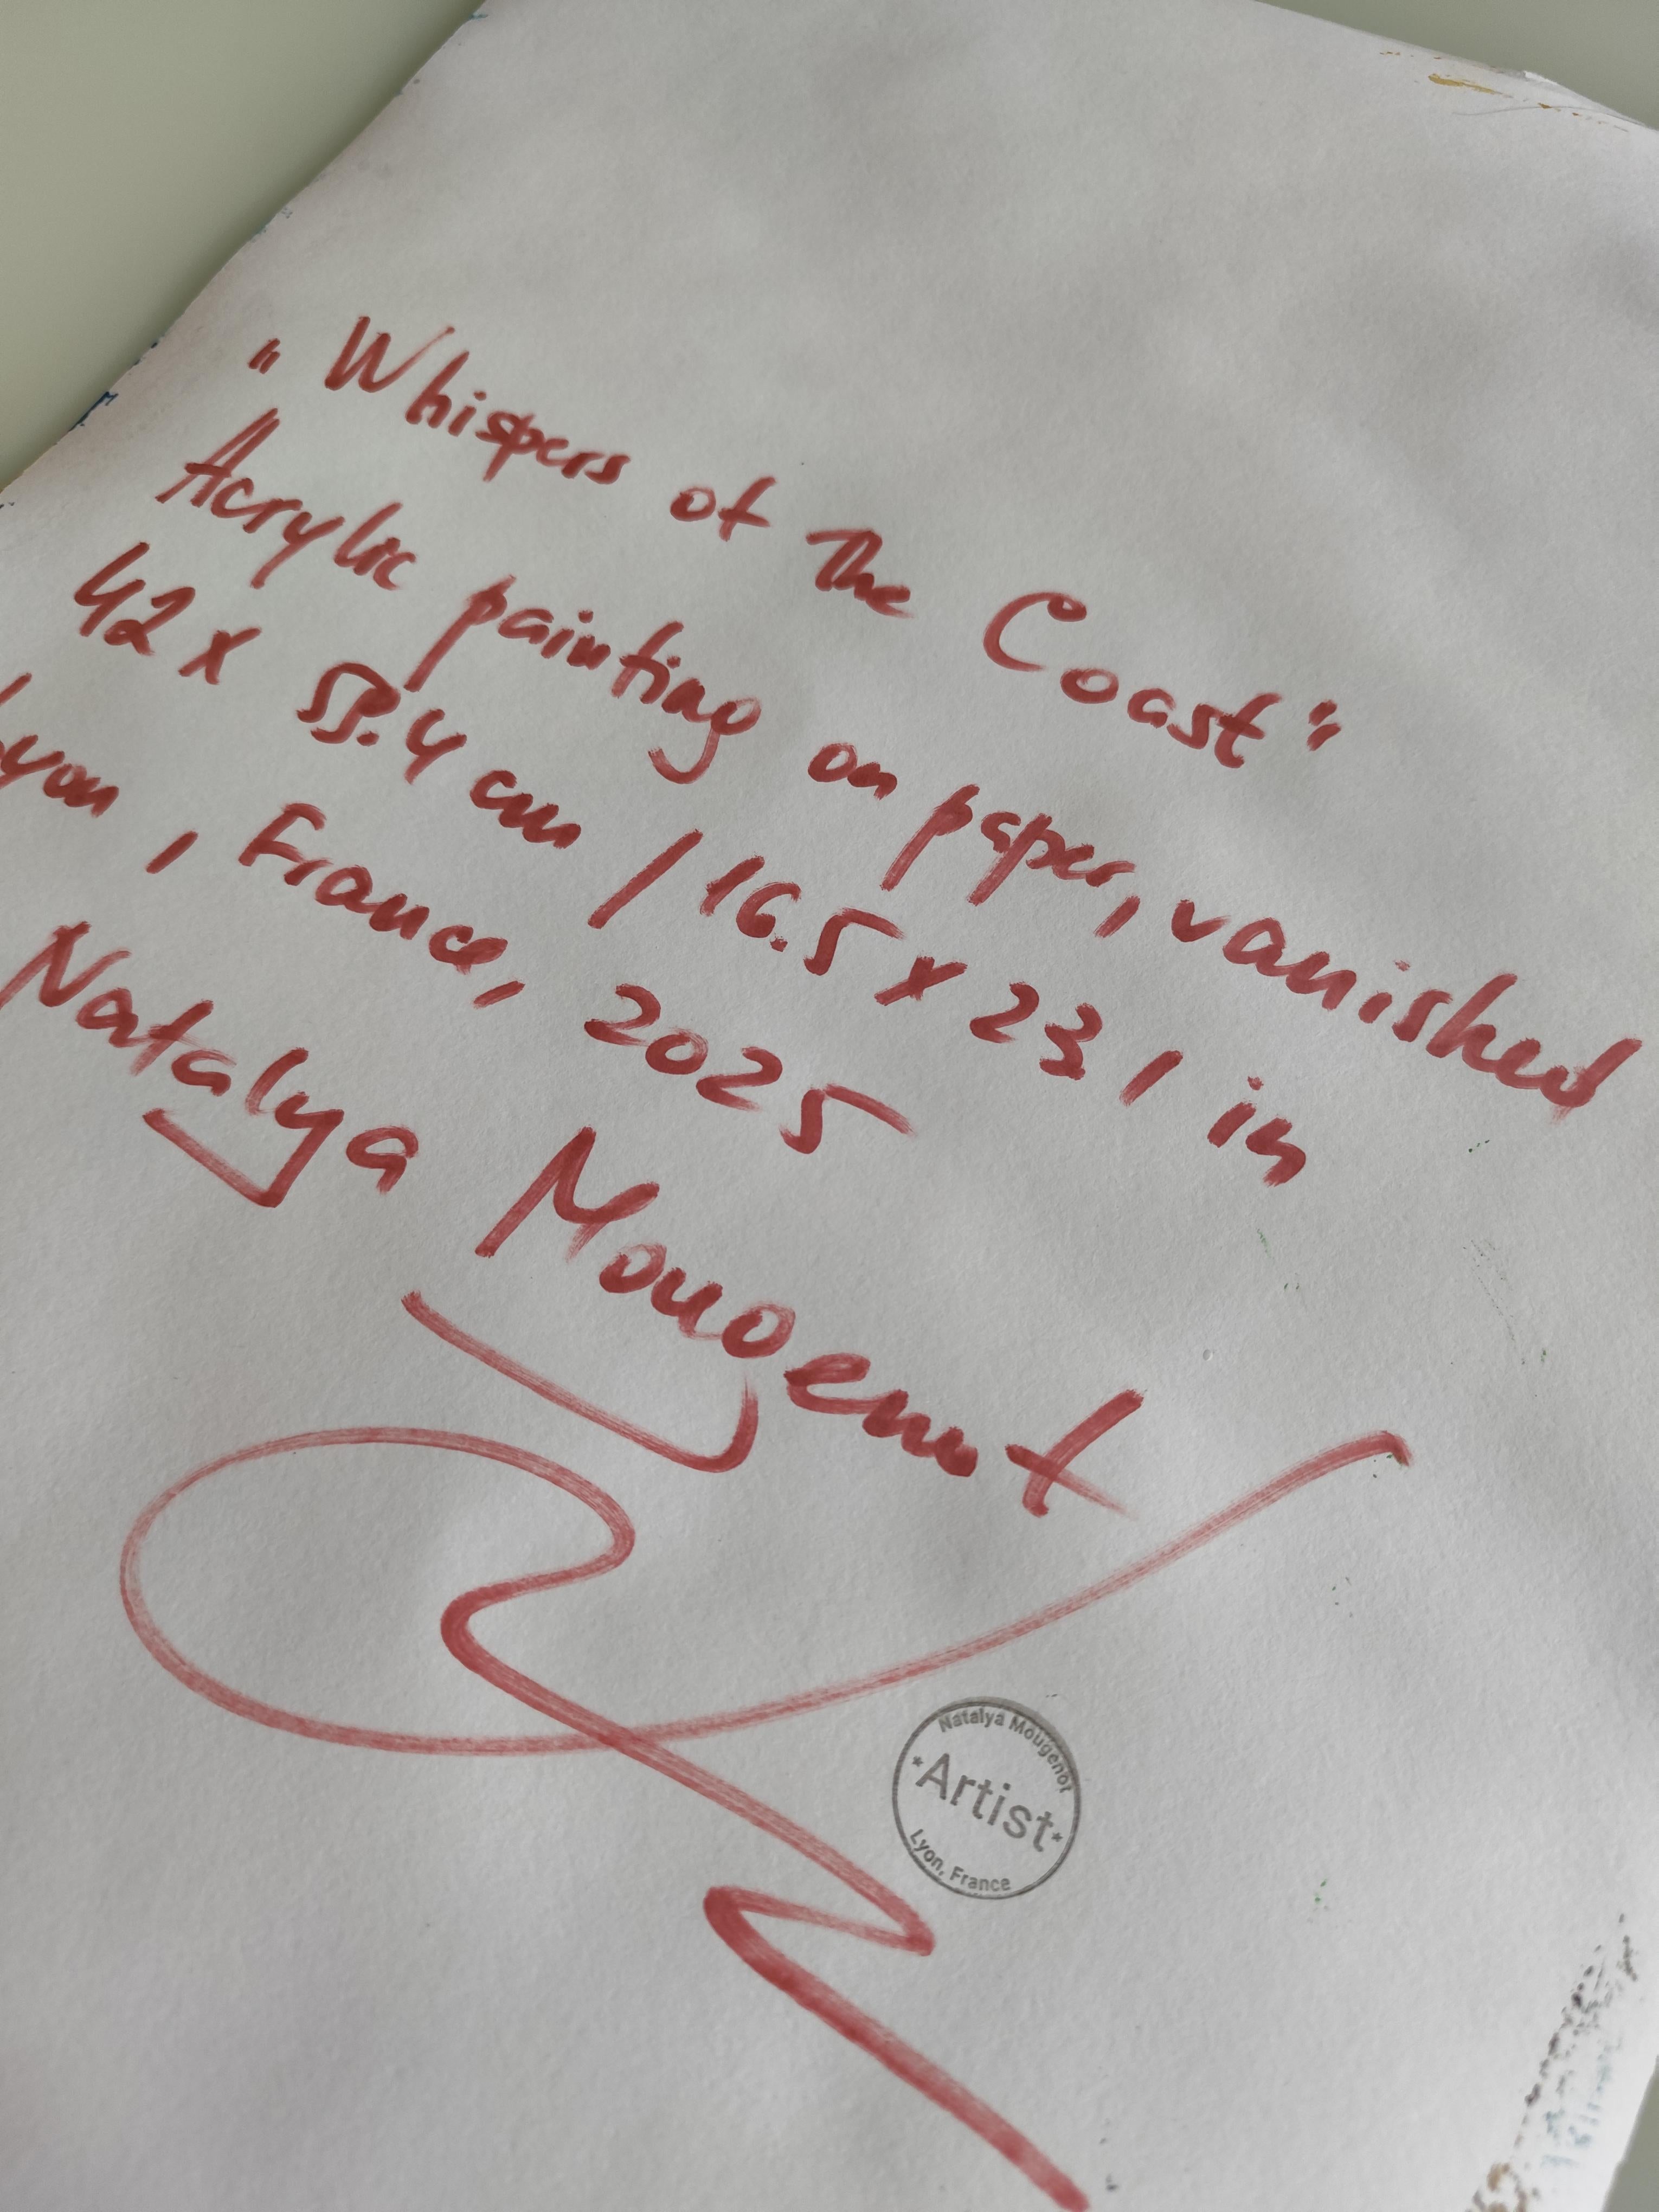 "Whispers of The Coast"
Acrylic painting on paper, vanished
42 x 59.4 cm / 16.5 x 23.1 in
Lyon, France, 2025
Natalya Mougenot
Natalya Mougenot
*Artist*
Lyon, France